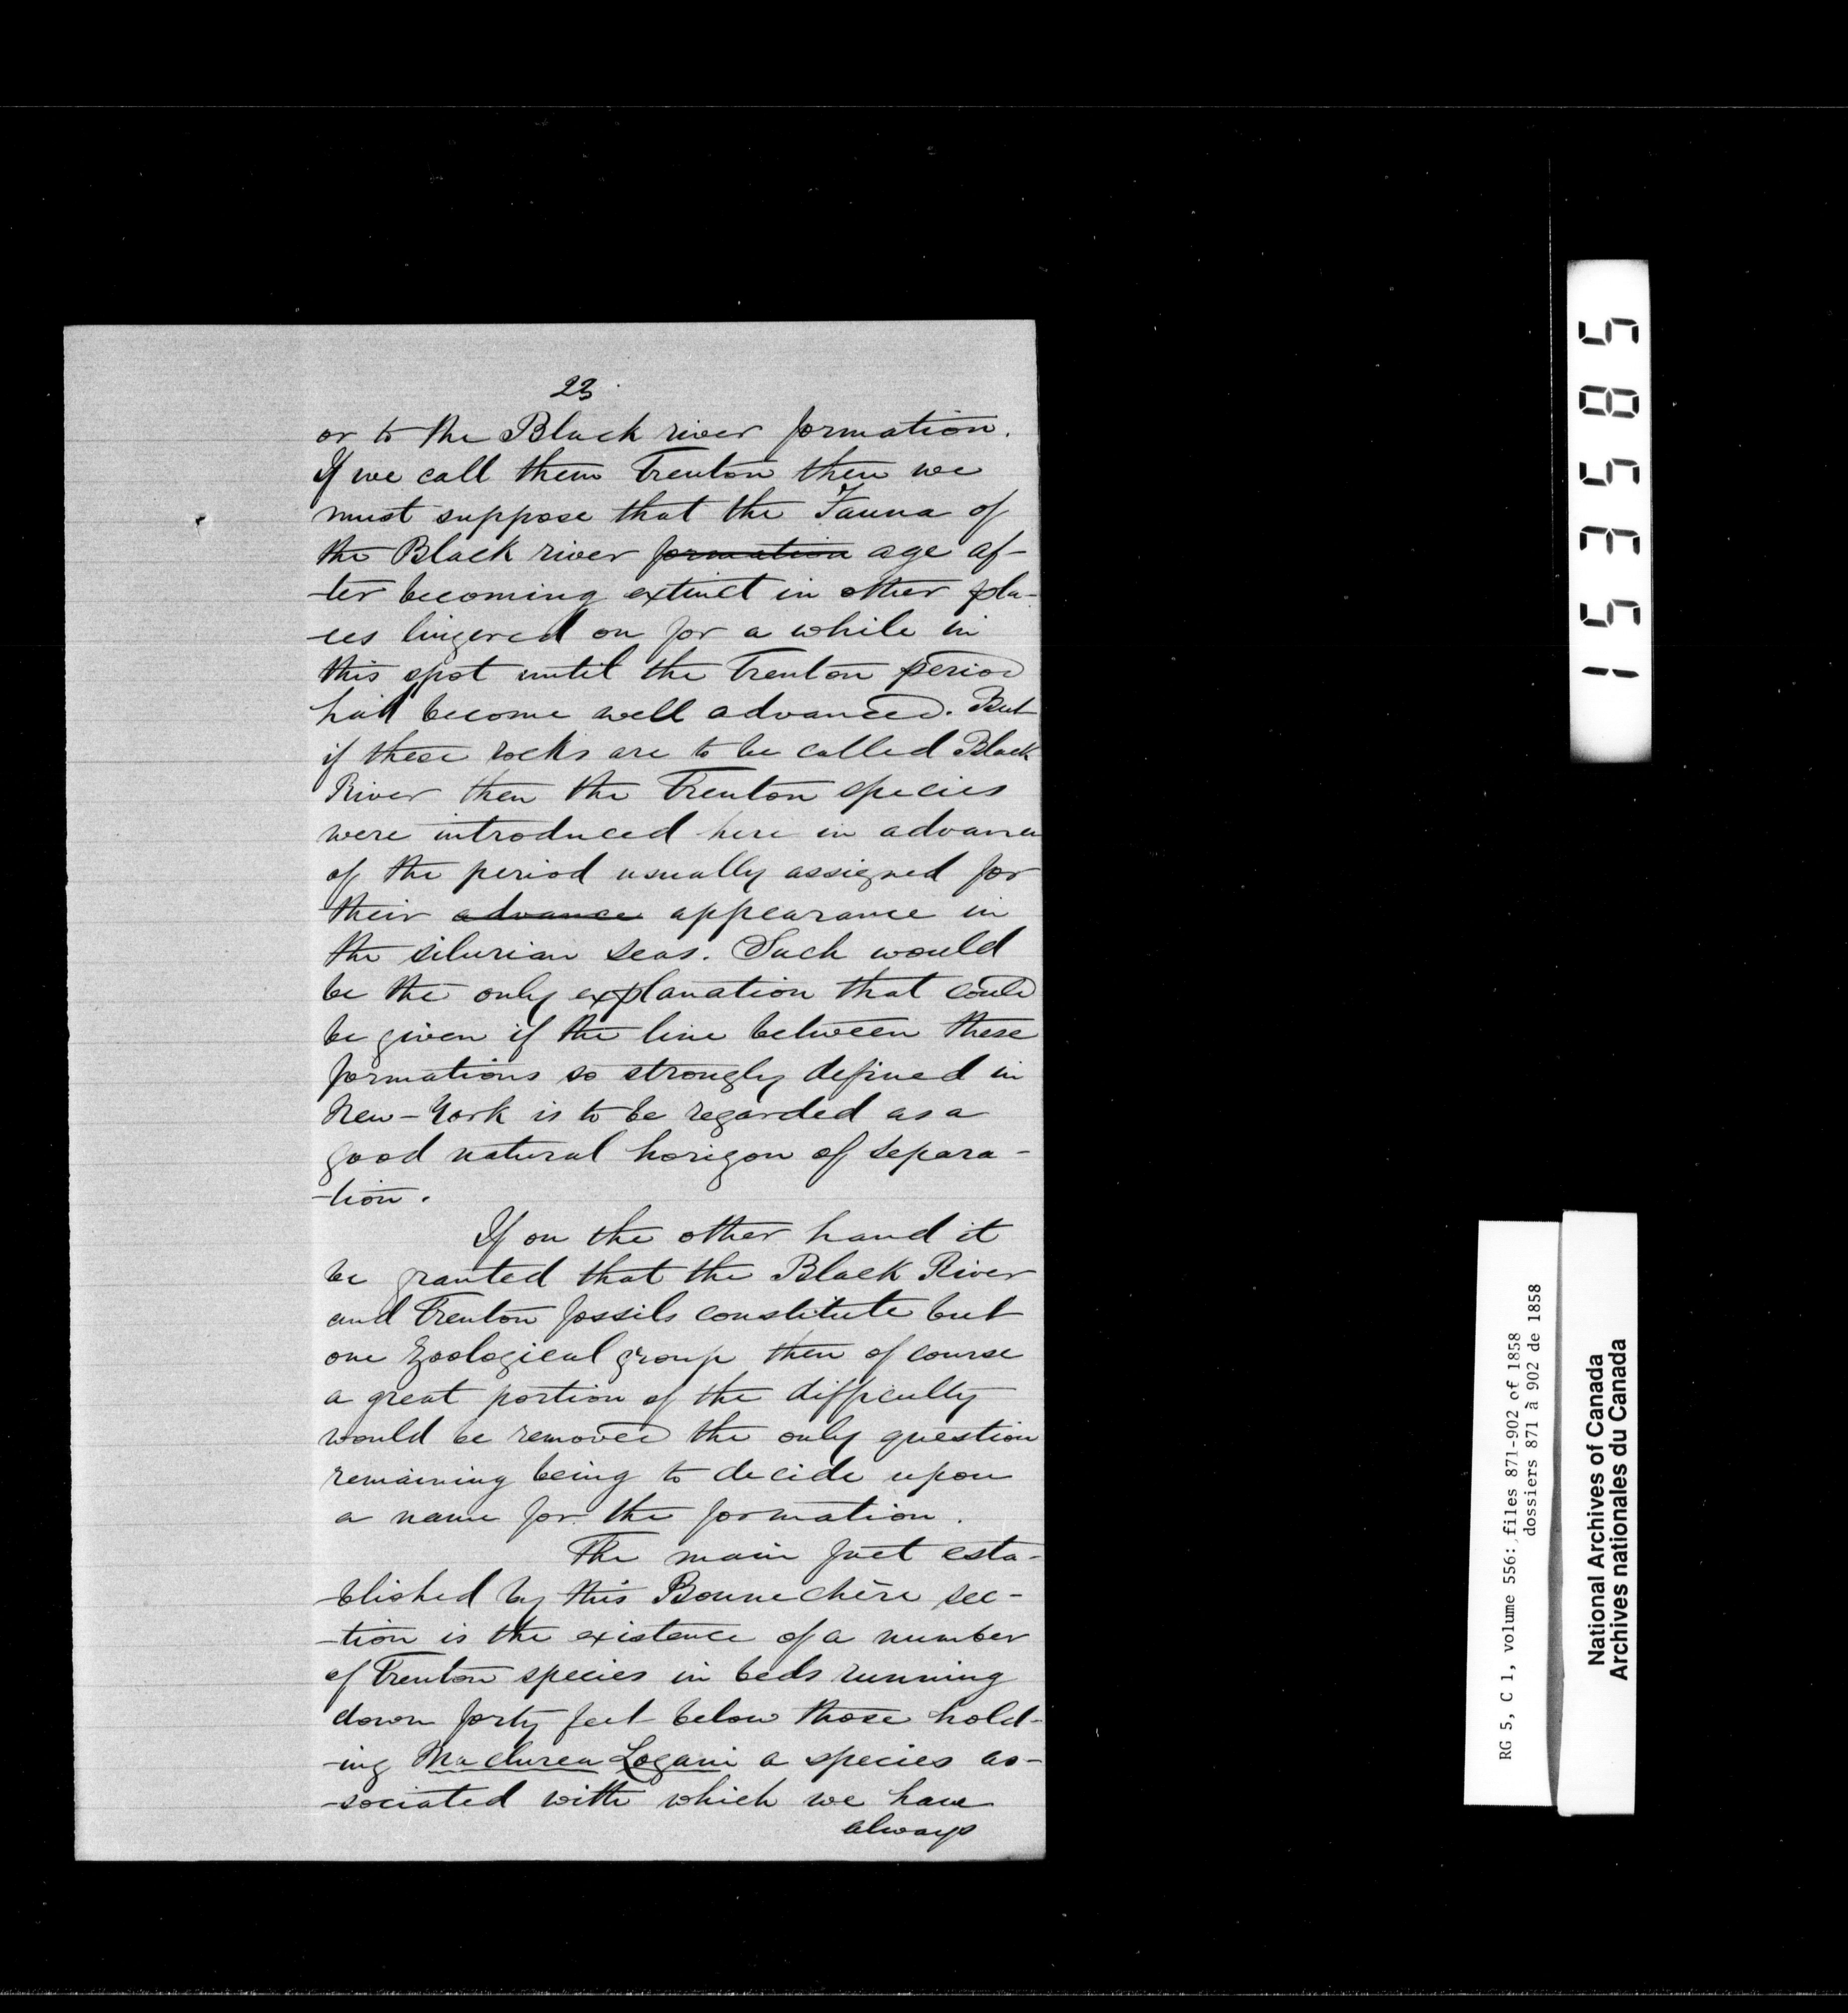 23
or to the Black river formation.
If we call them Trenton then we
must suppose that the Fauna of
the Black river formation age af-
-ter becoming extinct in other pla-
-ces lingered on for a while in
this spot until the Trenton period
had become well advanced. But
if these rocks are to be called Black
River then the Trenton species
were introduced here in advance
of the period usually assigned for
their advance appearance in
the silurian seas. Such would
be the only explanation that could
be given if the line between these
formations so strongly defined in
New-York is to be regarded as a
good natural horizon of separa-
-tion.
If on the other hand it
be granted that the Black River
and Trenton fossils constitute but
one Zoological group then of course
a great portion of the difficulty
would be removed the only question
remaining being to decide upon
a name for the formation.
The main fact esta-
-blished by this Bonnechère sec-
-tion is the existence of a number
of Trenton species in beds running
down forty feet below those hold-
-ing Maclurea Logani a species as-
-sociated with which we have
always
153585
RG 5, C 1, volume 556: files 871-902 of 1858
dossiers 871 à 902 de 1858
National Archives of Canada
Archives nationales du Canada